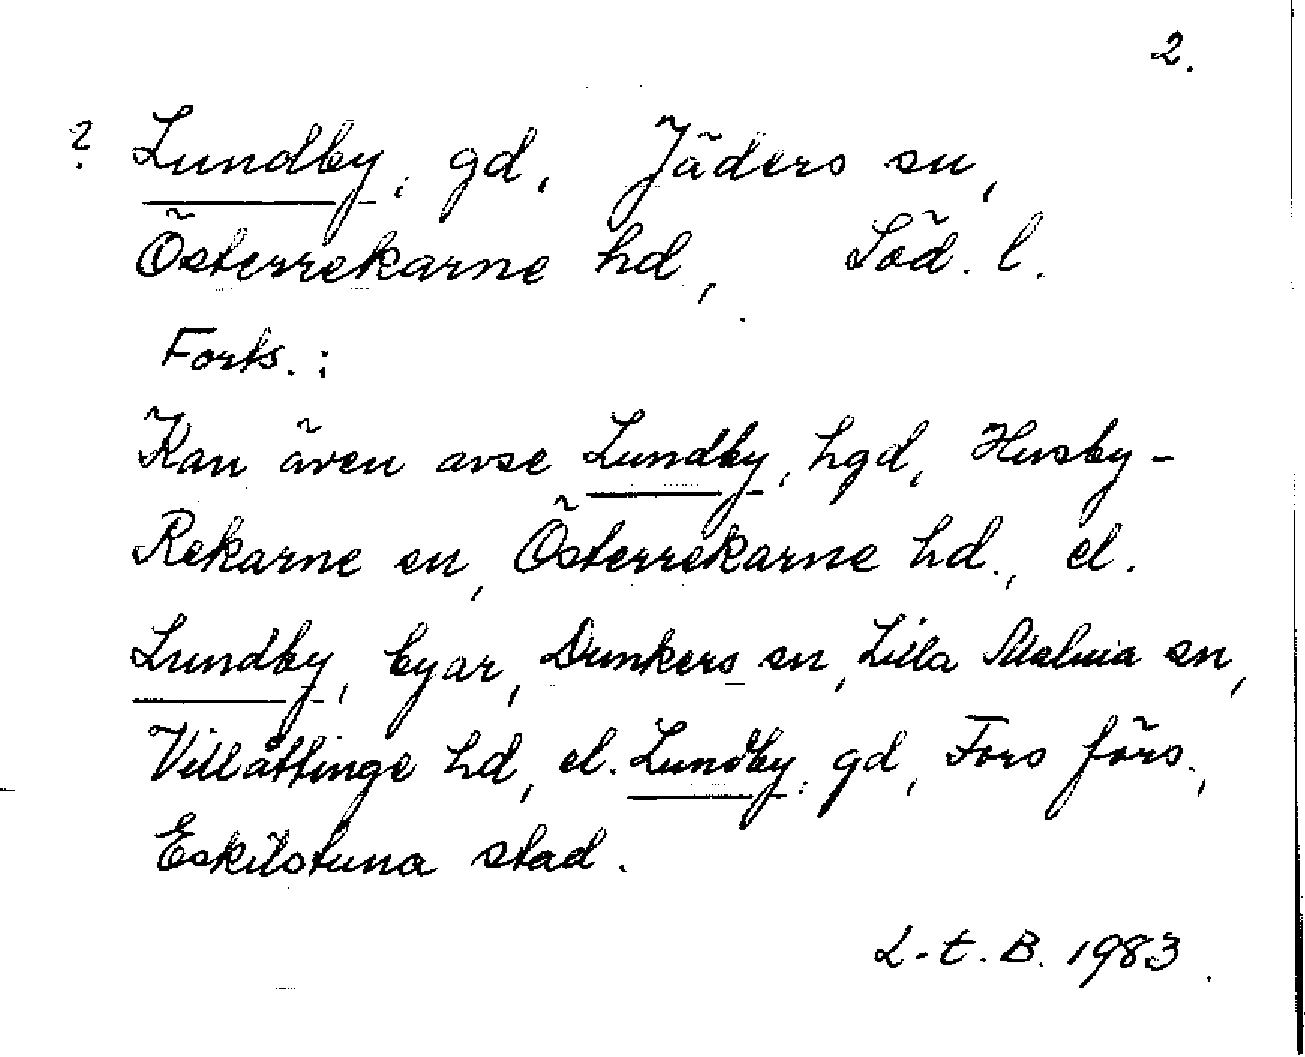 2.
? Lundby, gd, Jäders sn,
Österrekarne hd, Söd. l.
Forts.:
Kan även avse Lundby, hgd, Husby-
Rekarne sn, Österrekarne hd., el.
Lundby, byar, Dunkers sn, Lilla Malma sn,
Villåttinge hd, el. Lundby, gd, Fors förs.,
Eskilstuna stad.
L-t. B. 1983.